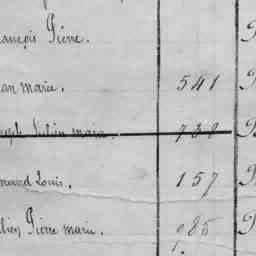 ançois Pierre. P
an marie. 541
Julien marie. 738
Louis. 157
lien Pierre marie. 085 P
1.